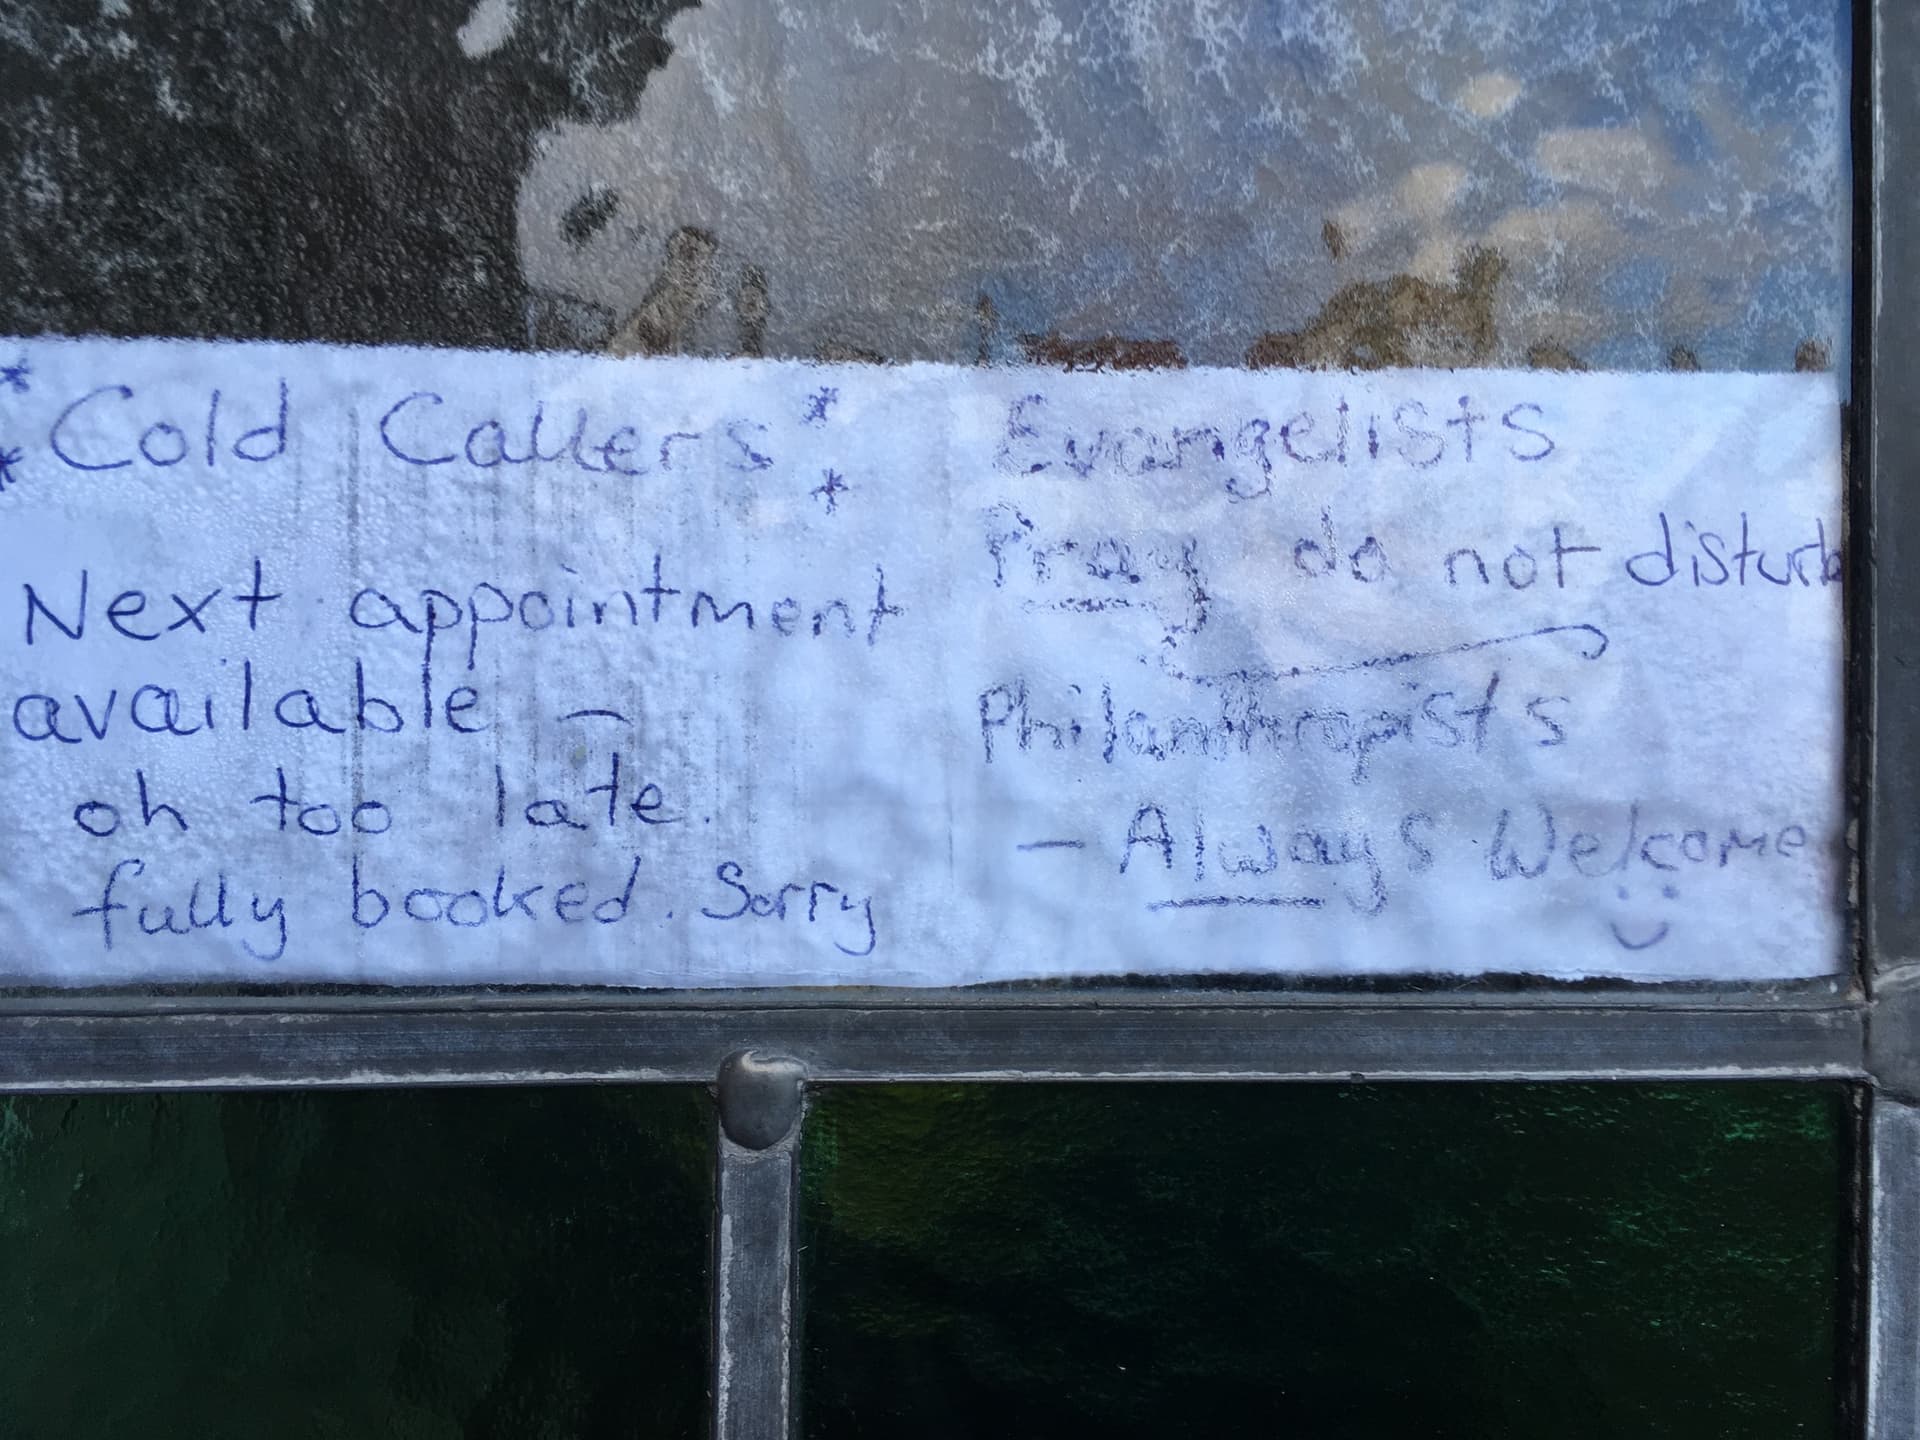 * Cold Callers *
* *
Next appointment
available –
oh too late.
fully booked. Sorry
Evangelists
Pray do not disturb
Philanthropists
– Always Welcome